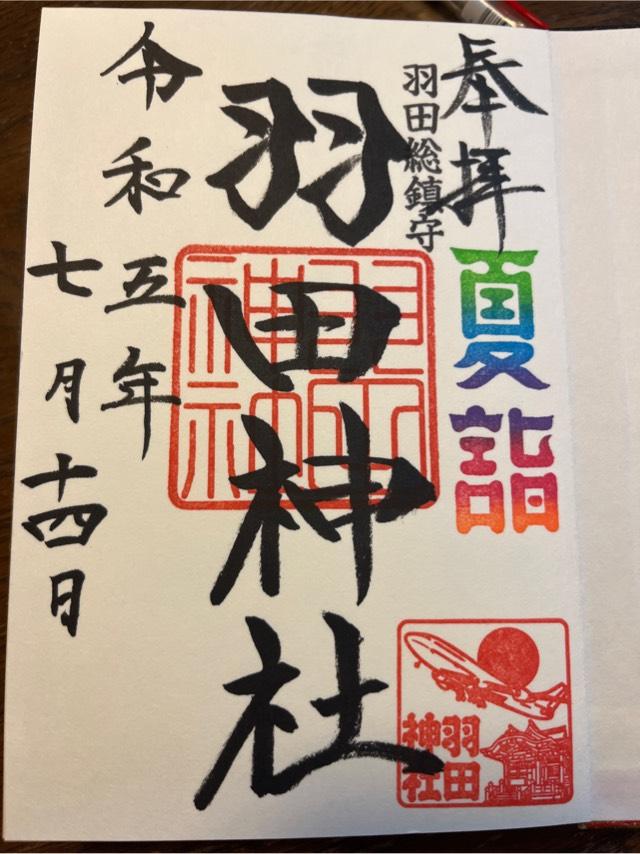 奉拝
羽田総鎮守
夏詣
羽田神社
羽田
神社
令和五年
七月十四日